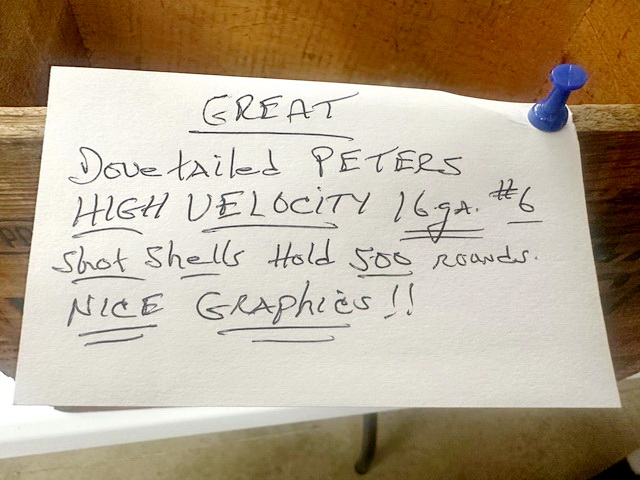 GREAT
Dovetailed PETERS
HIGH VELOCITY 16.ga. #6
Shot Shells Hold 500 rounds.
NICE GRAPhics!!